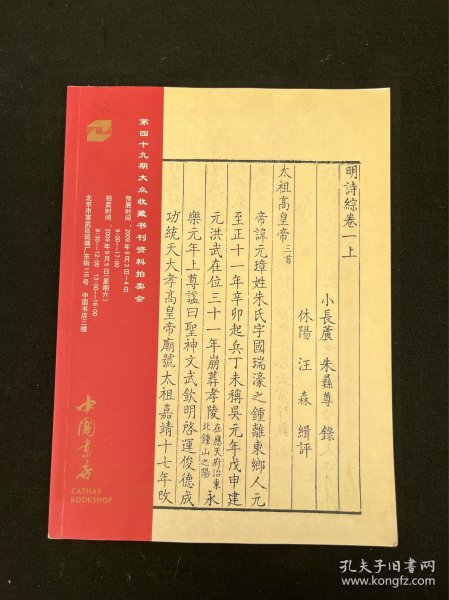 第四十九期大众收藏书刊资料拍卖会
预展时间
2009年9月3日—4日
9:00—17:00
拍卖时间
2009年9月5日(星期六)
9:30—12:00 13:00—16:00
北京市宣武区琉璃厂东街115号 中国书店三楼
中國書店
CATHAY
BOOKSHOP
明詩綜卷一上
小長蘆 朱彝尊 錄
休陽 汪森 緝評
太祖高皇帝三首
帝諱元璋姓朱氏字國瑞濠之鍾離東鄉人元
至正十一年辛卯起兵丁未稱吳元年戊申建
元洪武在位三十一年崩葬孝陵在應天府治東北鐘山之陽永
樂元年上尊謚曰聖神文武欽明啓運俊德成
功統天大孝高皇帝廟號太祖嘉靖十七年改
孔夫子旧书网
www.kongfz.com